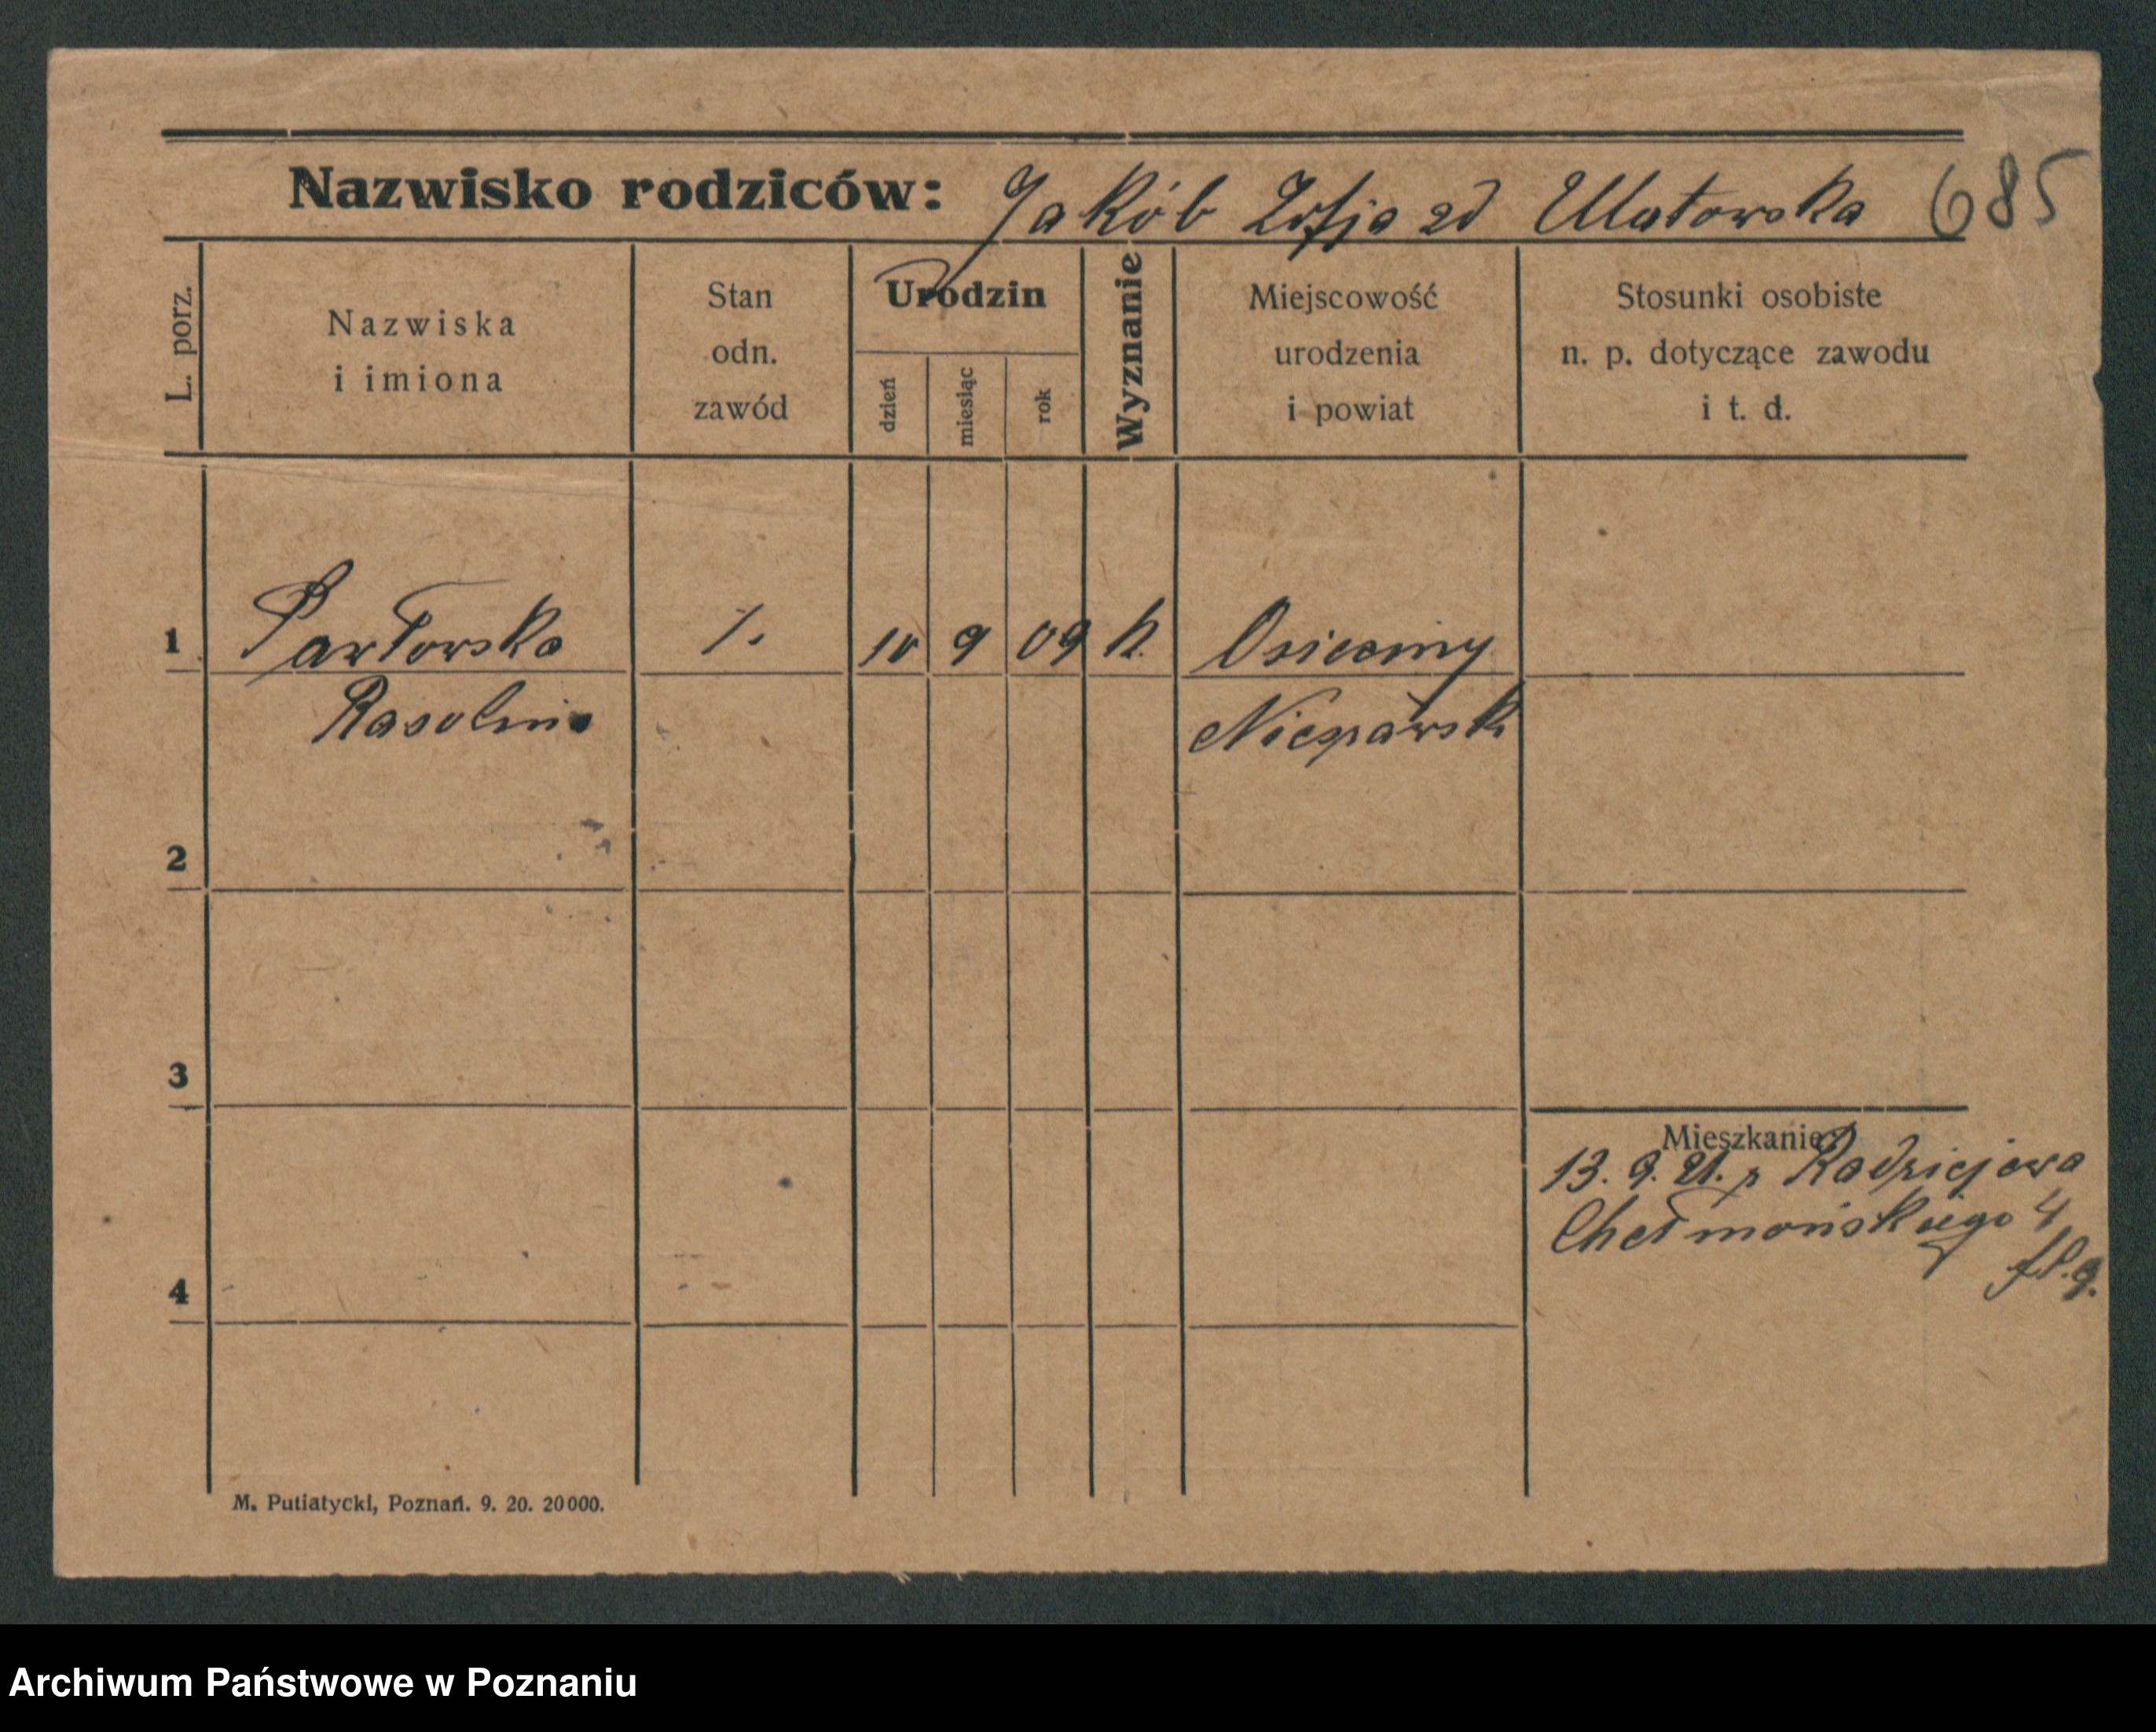 Nazwisko rodziców: Jakób Zofja zd Ulatowska 685
L. porz.
Nazwiska
i imiona
Stan
odn.
zawód
Urodzin
dzień
miesiąc
rok
Wyznanie
Miejscowość
urodzenia
i powiat
Stosunki osobiste
n. p. dotyczące zawodu
i t. d.
1 Pawłowska /. 10 9 09 k. Osięciny
Nieszawski
2
3
4
Mieszkanie:
13. 9. 21. z Radziejowa
Chełmońskiego 4
M. Putiatycki, Poznań. 9. 20. 20000.
Archiwum Państwowe w Poznaniu